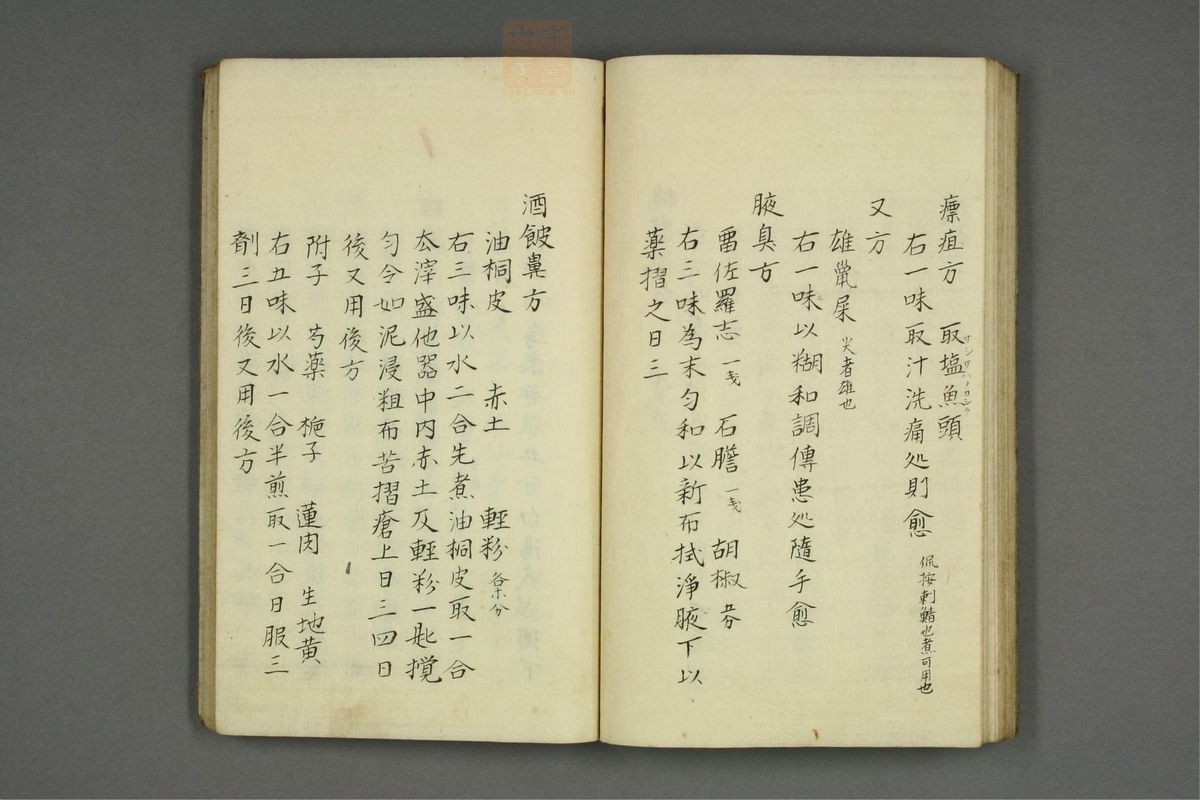 瘭疽方 取塩魚頭
右一味取汁洗痛処則愈 侃按刺鯖也煮可用也
又方
雄鼠屎 尖者雄也
右一味以糊和調傅患処隨手愈
腋臭方
畱佐羅志 一戔 石膽 一戔 胡椒 五分
右三味為末匀和以新布拭淨腋下以
薬摺之日三
酒皶鼻方
油桐皮 赤土 輕粉 各十分
右三味以水二合先煮油桐皮取一合
去滓盛他器中内赤土及輕粉一匙攪
匀令如泥浸粗布苦摺瘡上日三四日
後又用後方
附子 芍薬 梔子 蓮肉 生地黄
右五味以水一合半煎取一合日服三
劑三日後又用後方